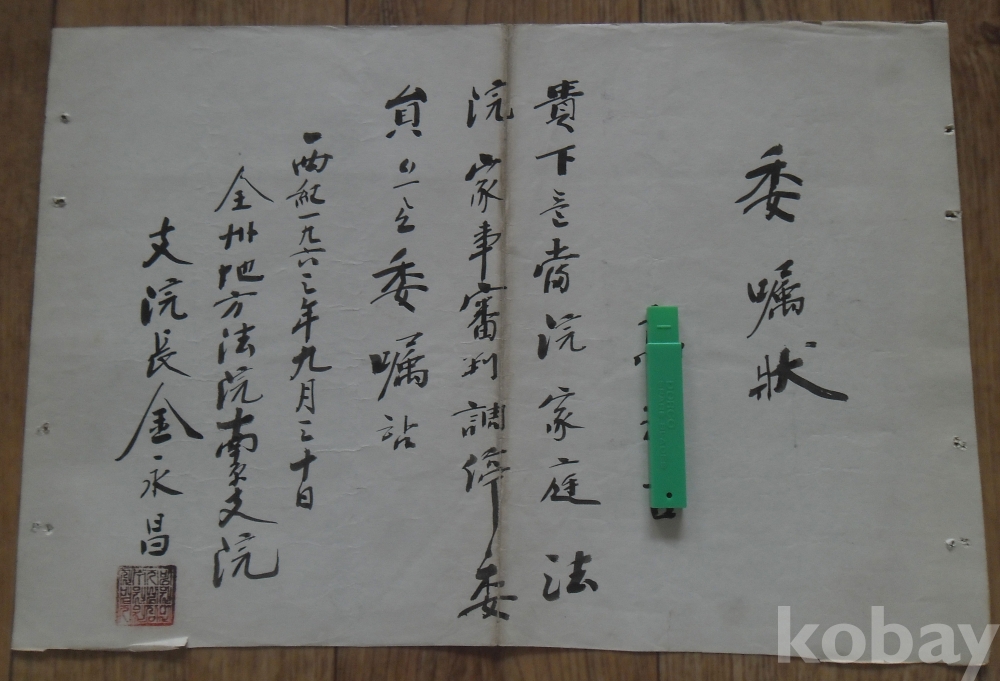 委嘱狀
貴下를 當院 家庭 法
院 家事審判調停委
員으로 委嘱함
西紀一九六三年九月三十日
全州地方法院南原支院
支院長 金永昌
kobay